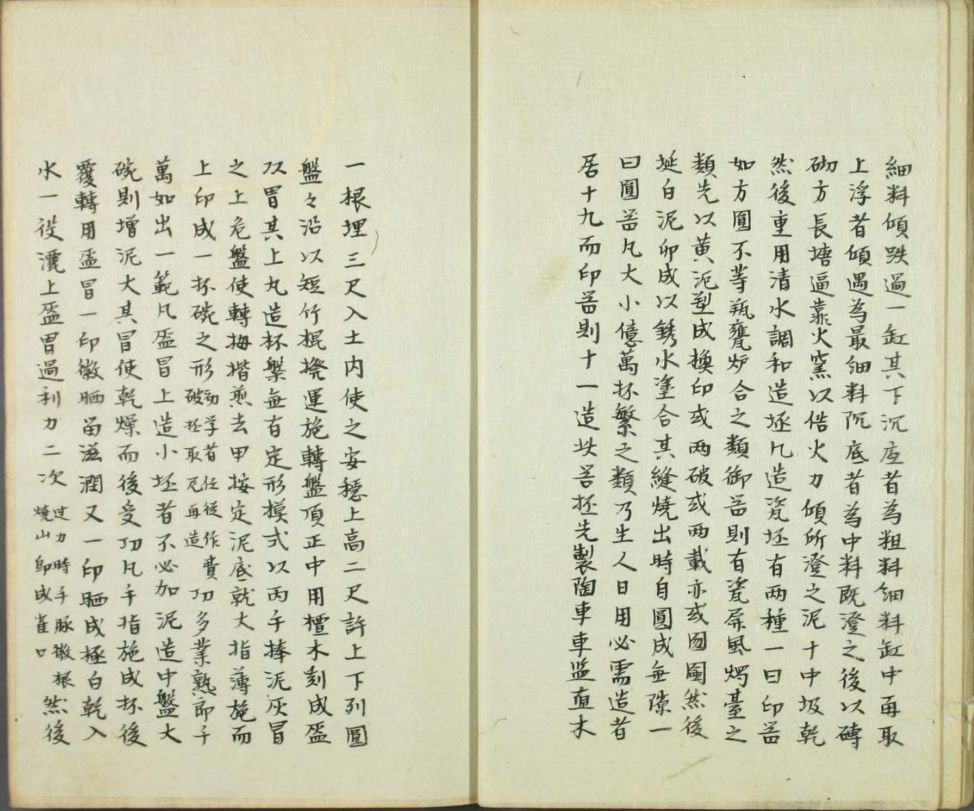 細料傾跌過一缸其下沉底者為粗料細料缸中再取
上浮者傾過為最細料沉底者為中料既澄之後以磚
砌方長塘逼靠火窯以借火力傾所澄之泥十中圾乾
然後重用清水調和造坯凡造瓷坯有兩種一曰印器
如方圓不等瓶甕炉合之類御器則有瓷屏風燭臺之
類先以黃泥塑成換印或兩破或兩載亦或囫圇然後
埏白泥卯成以銹水塗合其縫燒出時自圓成無隙一
曰圓器凡大小億萬杯繁之類乃生人日用必需造者
居十九而印器則十一造此器坯先製陶車車監直木
一根埋三尺入土內使之安穩上高二尺許上下列圓
盤々沿以短竹棍撓運施轉盤頂正中用檀木刻成盔
以冒其上凡造杯槃無有定形模式以兩手捧泥灰冒
之上危盤使轉拇揩煎去甲按定泥底就大指薄施而
上印成一杯碗之形初學者任從作費破坯取瓦再造功多業熟即千
萬如出一範凡盔冒上造小坯者不必加泥造中盤大
碗則增泥大其冒使乾燥而後受功凡手指施成杯後
覆轉用盔冒一印徽晒留滋潤又一印晒成極白乾入
水一役灑上盔冒過利刀二次过刀時手脉徽根燒山即成雀口然後